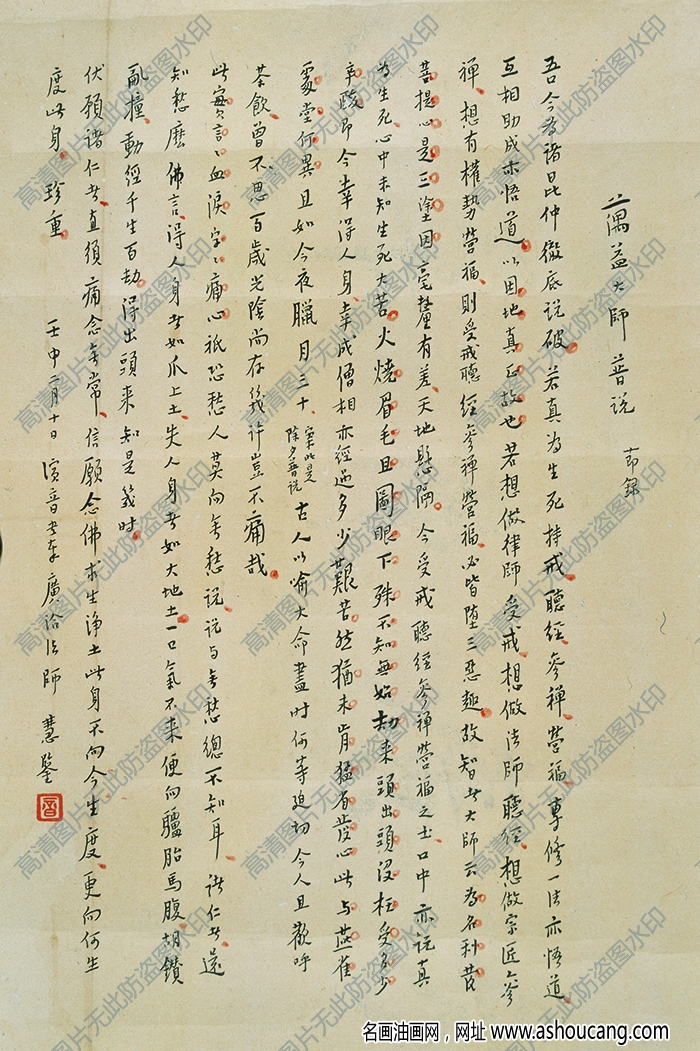 蕅益大師普說 節錄
吾今為諸昆仲徹底說破若真為生死持戒聽經參禪營福專修一法亦悟道
互相助成亦悟道以因地真正故也若想做律師受戒想做法師聽經想做宗匠參
禪想有權勢營福則受戒聽經參禪營福必皆墮三惡趣故智者大師云為名利發
菩提心是三塗因毫釐有差天地懸隔今受戒聽經參禪營福之士口中亦說真
為生死心中未知生死大苦火燒眉毛且圖眼下殊不知無始劫來頭出頭沒枉受多少
辛酸即今幸得人身幸成僧相亦經過多少艱苦然猶未肯猛省發心此與燕雀
處堂何異且如今夜臘月三十 案此是除夕普說 古人以喻大命盡時何等迫切今人且歡呼
茶飲曾不思百歲光陰尚存幾許豈不痛哉
此實言言血淚字字痛心祇恐愁人莫向無愁說說與無愁總不知耳諸仁者還
知愁麼佛言得人身者如爪上土失人身者如大地土一口氣不來便向驢胎馬腹胡鑽
亂撞動經千生百劫得出頭來知是幾時
伏願諸仁者直須痛念無常信願念佛求生淨土此身不向今生度更向何生
度此身珍重 壬申二月十日演音書奉廣洽法師 慧鑒
音
高清图片无此防盗图水印
名画油画网，网址 www.ashoucang.com